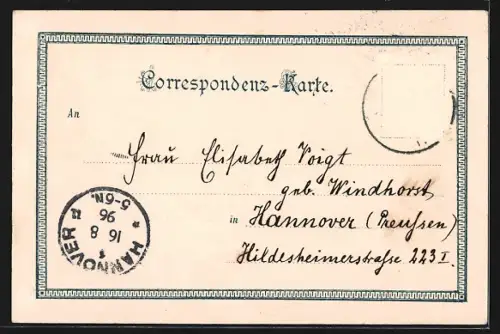 Correspondenz-Karte.
An
Frau Elisabeth Voigt
geb. Windhorst,
in Hannover (Preussen)
Hildesheimerstrasse 223 I.
HANNOVER
1
16 8
96
5-6N.